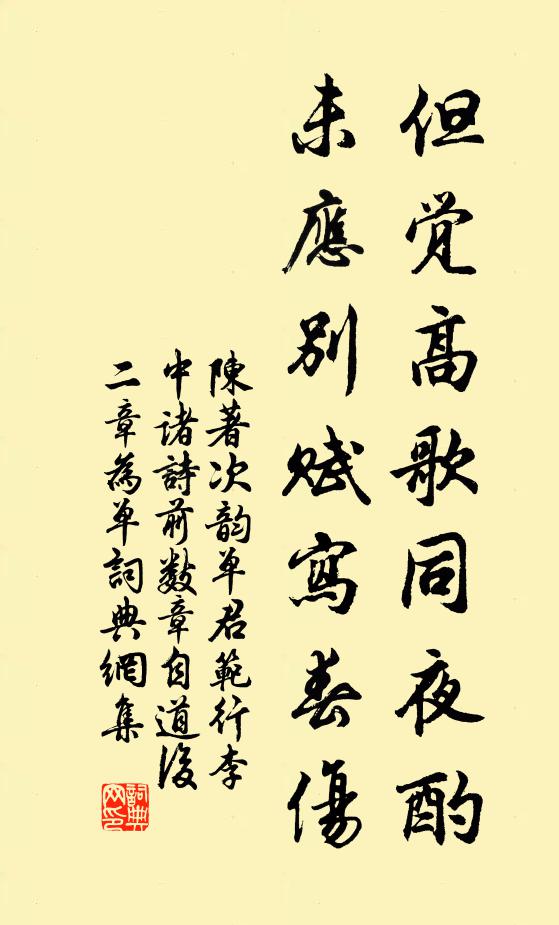 但觉高歌同夜酌
未應別赋寫春傷
陳著次韵单君範行李
中诸詩前数章自道後
二章為单詞典網集
詞典网印